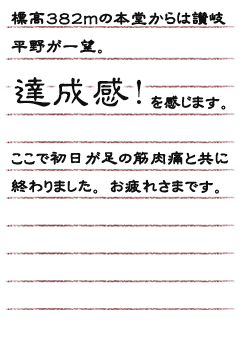 標高382mの本堂からは讃岐
平野が一望。
達成感!を感じます。
ここで初日が足の筋肉痛と共に
終わりました。お疲れさまです。